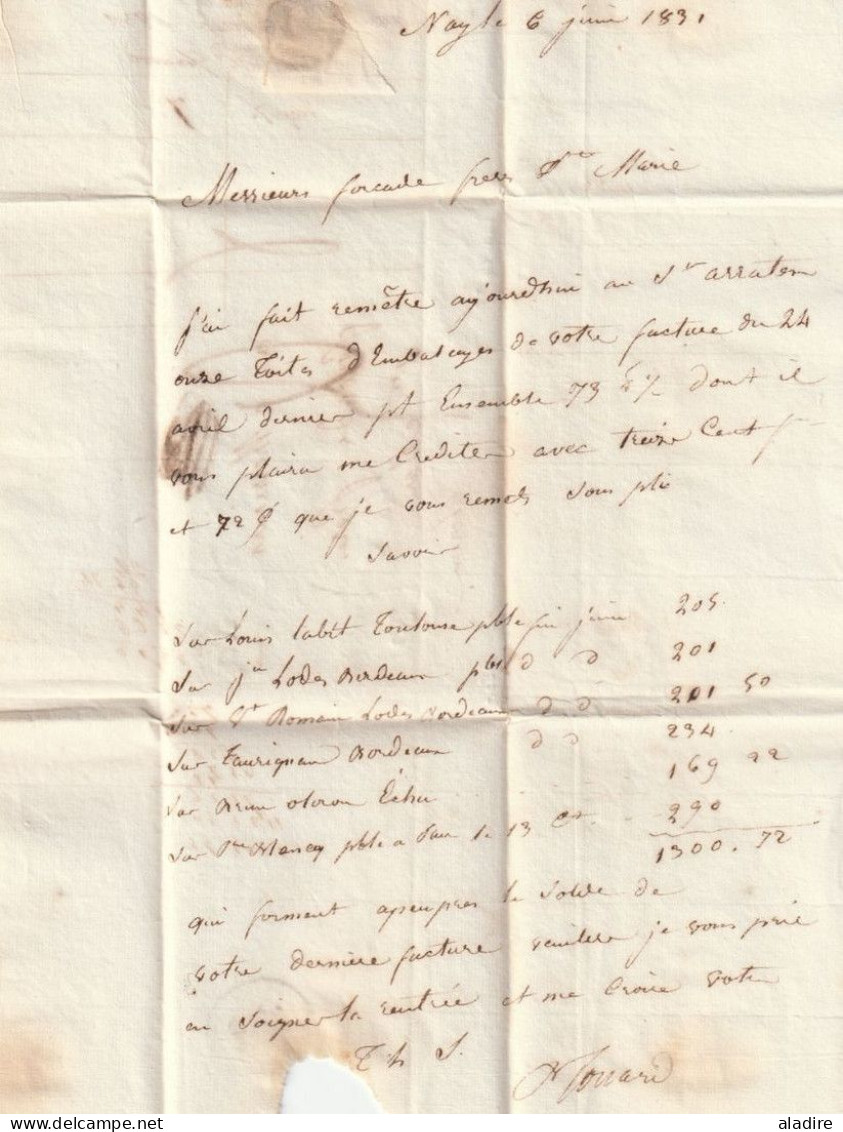 Nay le 6 juin 1831
Messieurs forcade freres Ste Marie
J'ai fait remêtre aujourdhui au Sr arraten
onze Toiles d'Embalages de votre facture du 24
avril dernier pt Ensemble 73 dont il
vous plaira me Crediter avec treize Cent f
et 72 que je vous remets sous pli
Savoir
Sur Louis Labit Toulouse pble fin juin 205
Sur jn Lodes Bordeaux pble d d 201
Sur St Romain Lodes Bordeaux d d 201 50
Sur Taurignan Bordeaux d d 234
Sur oloron Échu 169 22
Sur pble a Pau le 13 Ct 290
1300.72
qui forment apeupres le Solde de
votre dernière facture veuillez je vous prie
en Soigner la rentrée et me Croire votre
T h S.
aladire
www.delcampe.net